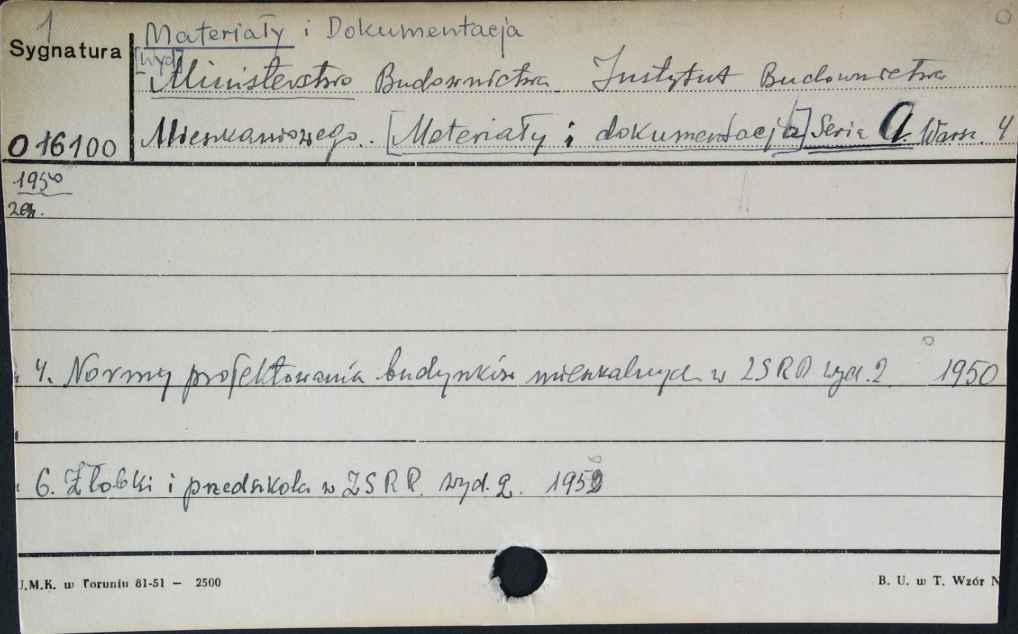 1
Materiały i Dokumentacja
Sygnatura
[wyd]
Ministerstwo Budownictwa Instytut Budownictwa
O 16100
Mieszkaniowego. [Materiały i dokumentacja] Seria A Warsz. 4
1950
2 eg.
4. Normy projektowania budynków mieszkalnych w ZSRR wyd. 2 1950
6. Żłobki i przedszkola w ZSRR. wyd. 2. 1950
U.M.K. w Toruniu 81-51 — 2500
B. U. w T. Wzór N